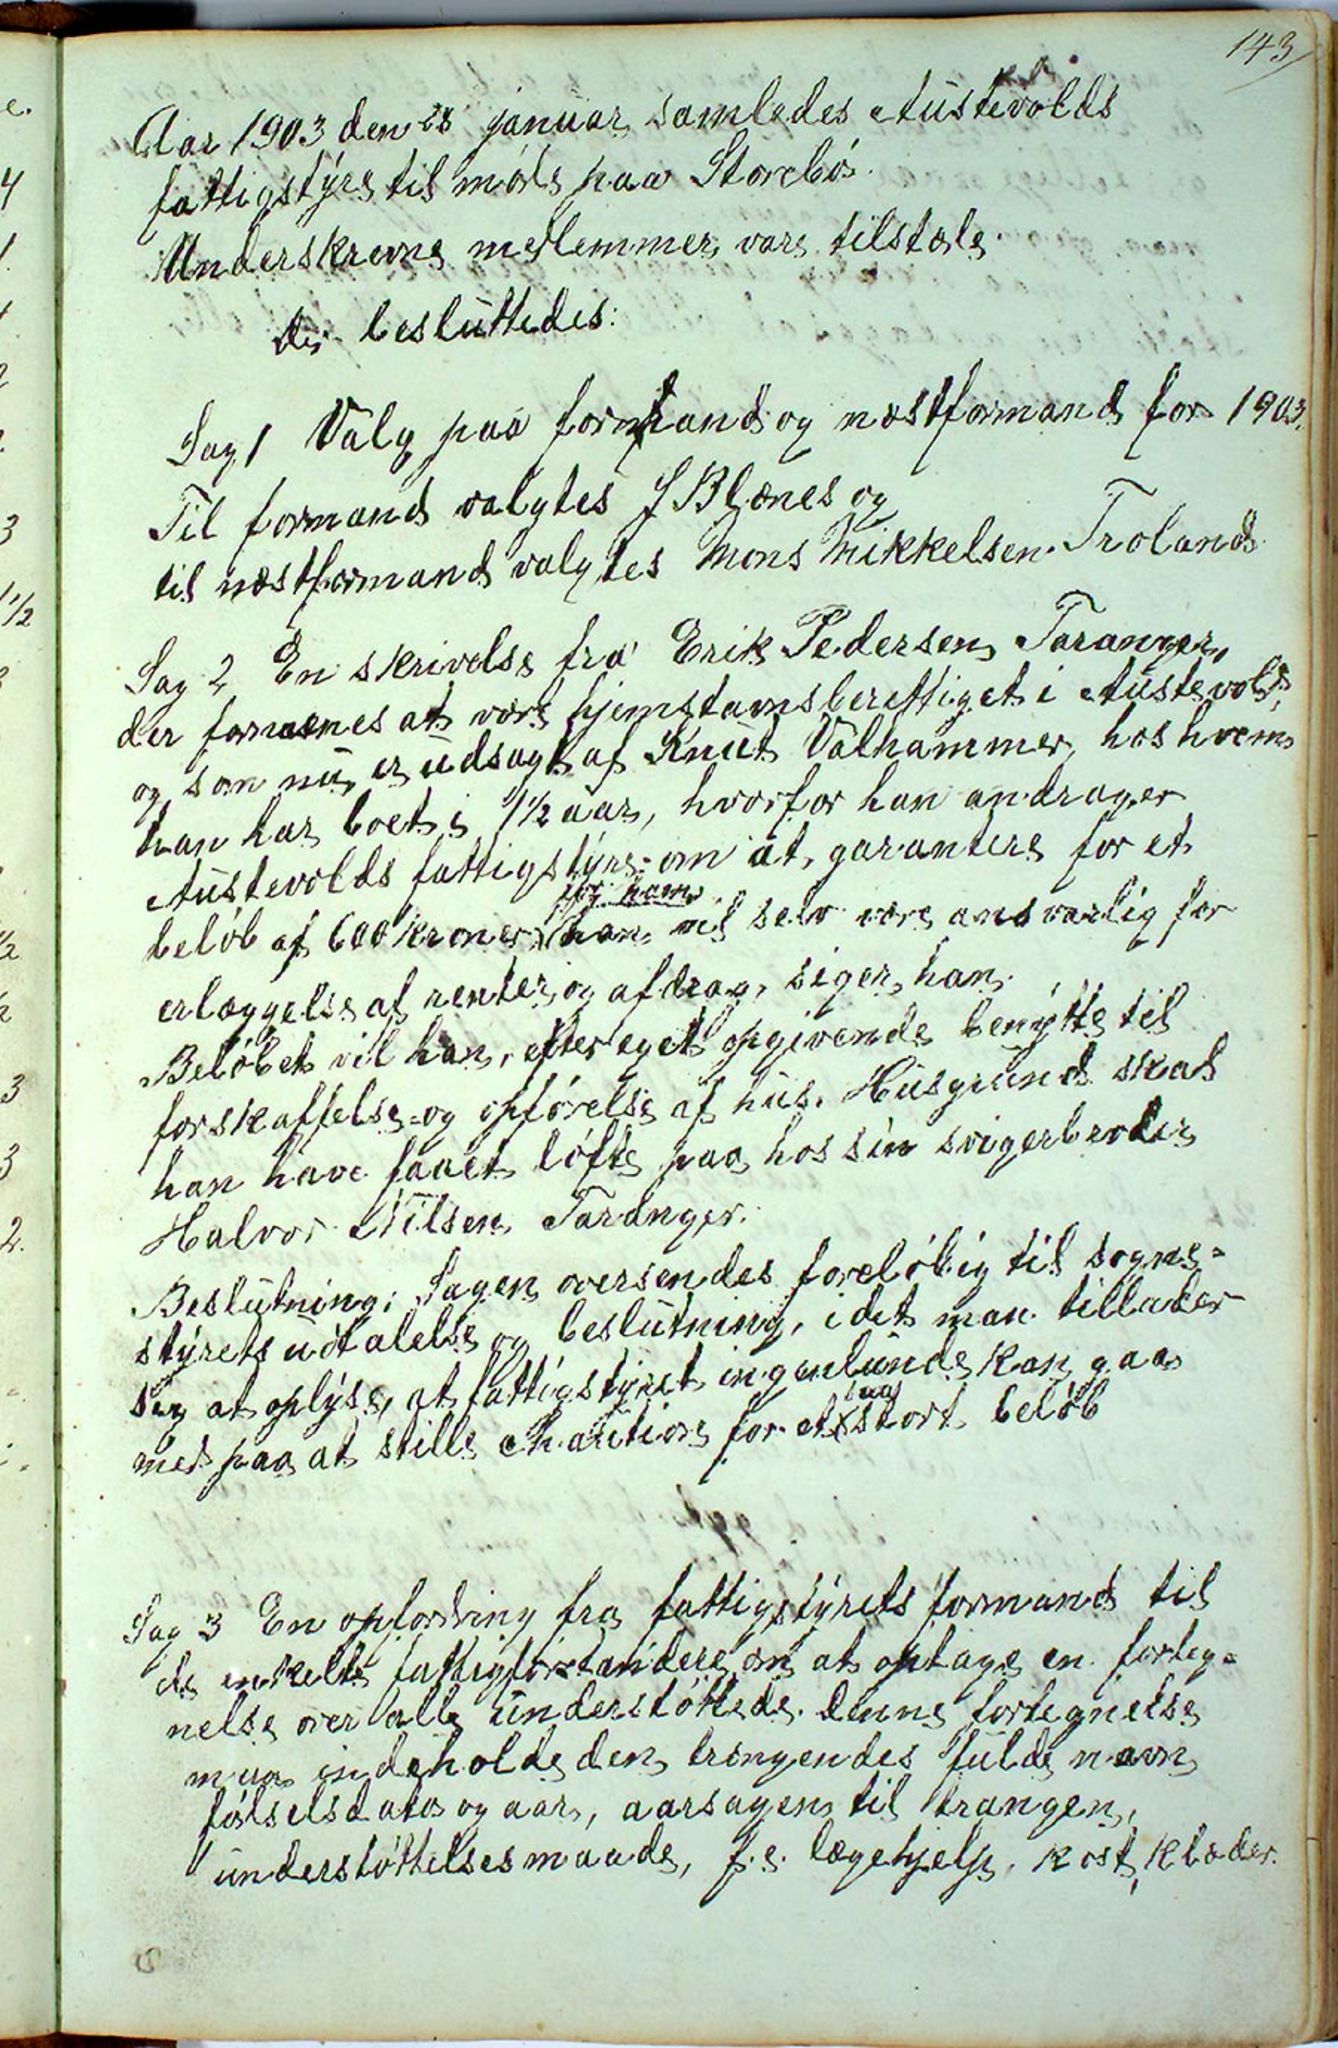 143
Aar 1903 den 28 januar samledes Austevolds
fattigstyre til møde paa Storebø.
Underskrevne medlemmer vare tilstæde.
der besluttedes:
Sag 1 Valg paa formand og næstformand for 1903.
Til formand valgtes J Blænes og
til næstformand valgtes Mons Mikkelsen Troland
Sag 2 En skrivelse fra Erik Pedersen Taranger,
der formenes at være hjemstavnsberettiget i Austevold,
og som nu er udsagt af Knut Valhammer, hos hvem
han har boet i 1½ aar, hvorfor han andrager
Austevolds fattigstyre om at garantere for et
for ham
beløb af 600 kroner, han vil selv være ansvarlig for
erlæggelse af renter og afdrag, siger han.
Beløbet vil han, efter eget opgivende benytte til
forskaffelse og opførelse af hus. Husgrund skal
han have faaet løfte paa hos sin svigerbroder
Halvor Nilsen Taranger.
Beslutning: Sagen oversendes foreløbig til sogne-
styrets udtalelse og beslutning, idet man tillader
sig at oplyse, at fattigstyret ingenlunde kan gaa
saa
med paa at stille chaution for et stort beløb
Sag 3 En opfordring fra fattigstyrets formand til
de enkelte fattigforstandere om at optage en forteg-
nelse over alle understøttede. Denne fortegnelse
maa indeholde den trængendes fulde navn
fødselsdato og aar, aarsagen til trangen,
understøttelsesmaade, f.e. lægehjelp, kost, klæder.